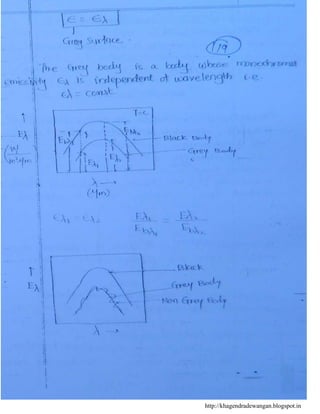 ε = ελ
Grey Surface.
119
The Grey body is a body whose monochromat
emissivity ελ is independent of wavelength i.e.
ελ = const
T=c
Eλ
(W/m²μm)
Ebλ₁
Ebλ₂
Eλ₁
Eλ₂
Black Body
Grey Body
λ →
(μm)
ελ₁ = ελ₂
Eλ₁/Ebλ₁ = Eλ₂/Ebλ₂
Black
Grey Body
Non Grey Body
Eλ
λ →
http://khagendradewangan.blogspot.in